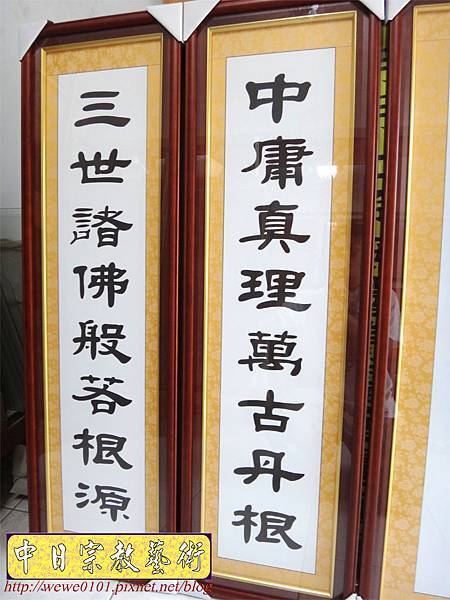 中庸真理萬古丹根
三世諸佛般若根源
中日宗教藝術
http://wewe0101.pixnet.net/blog